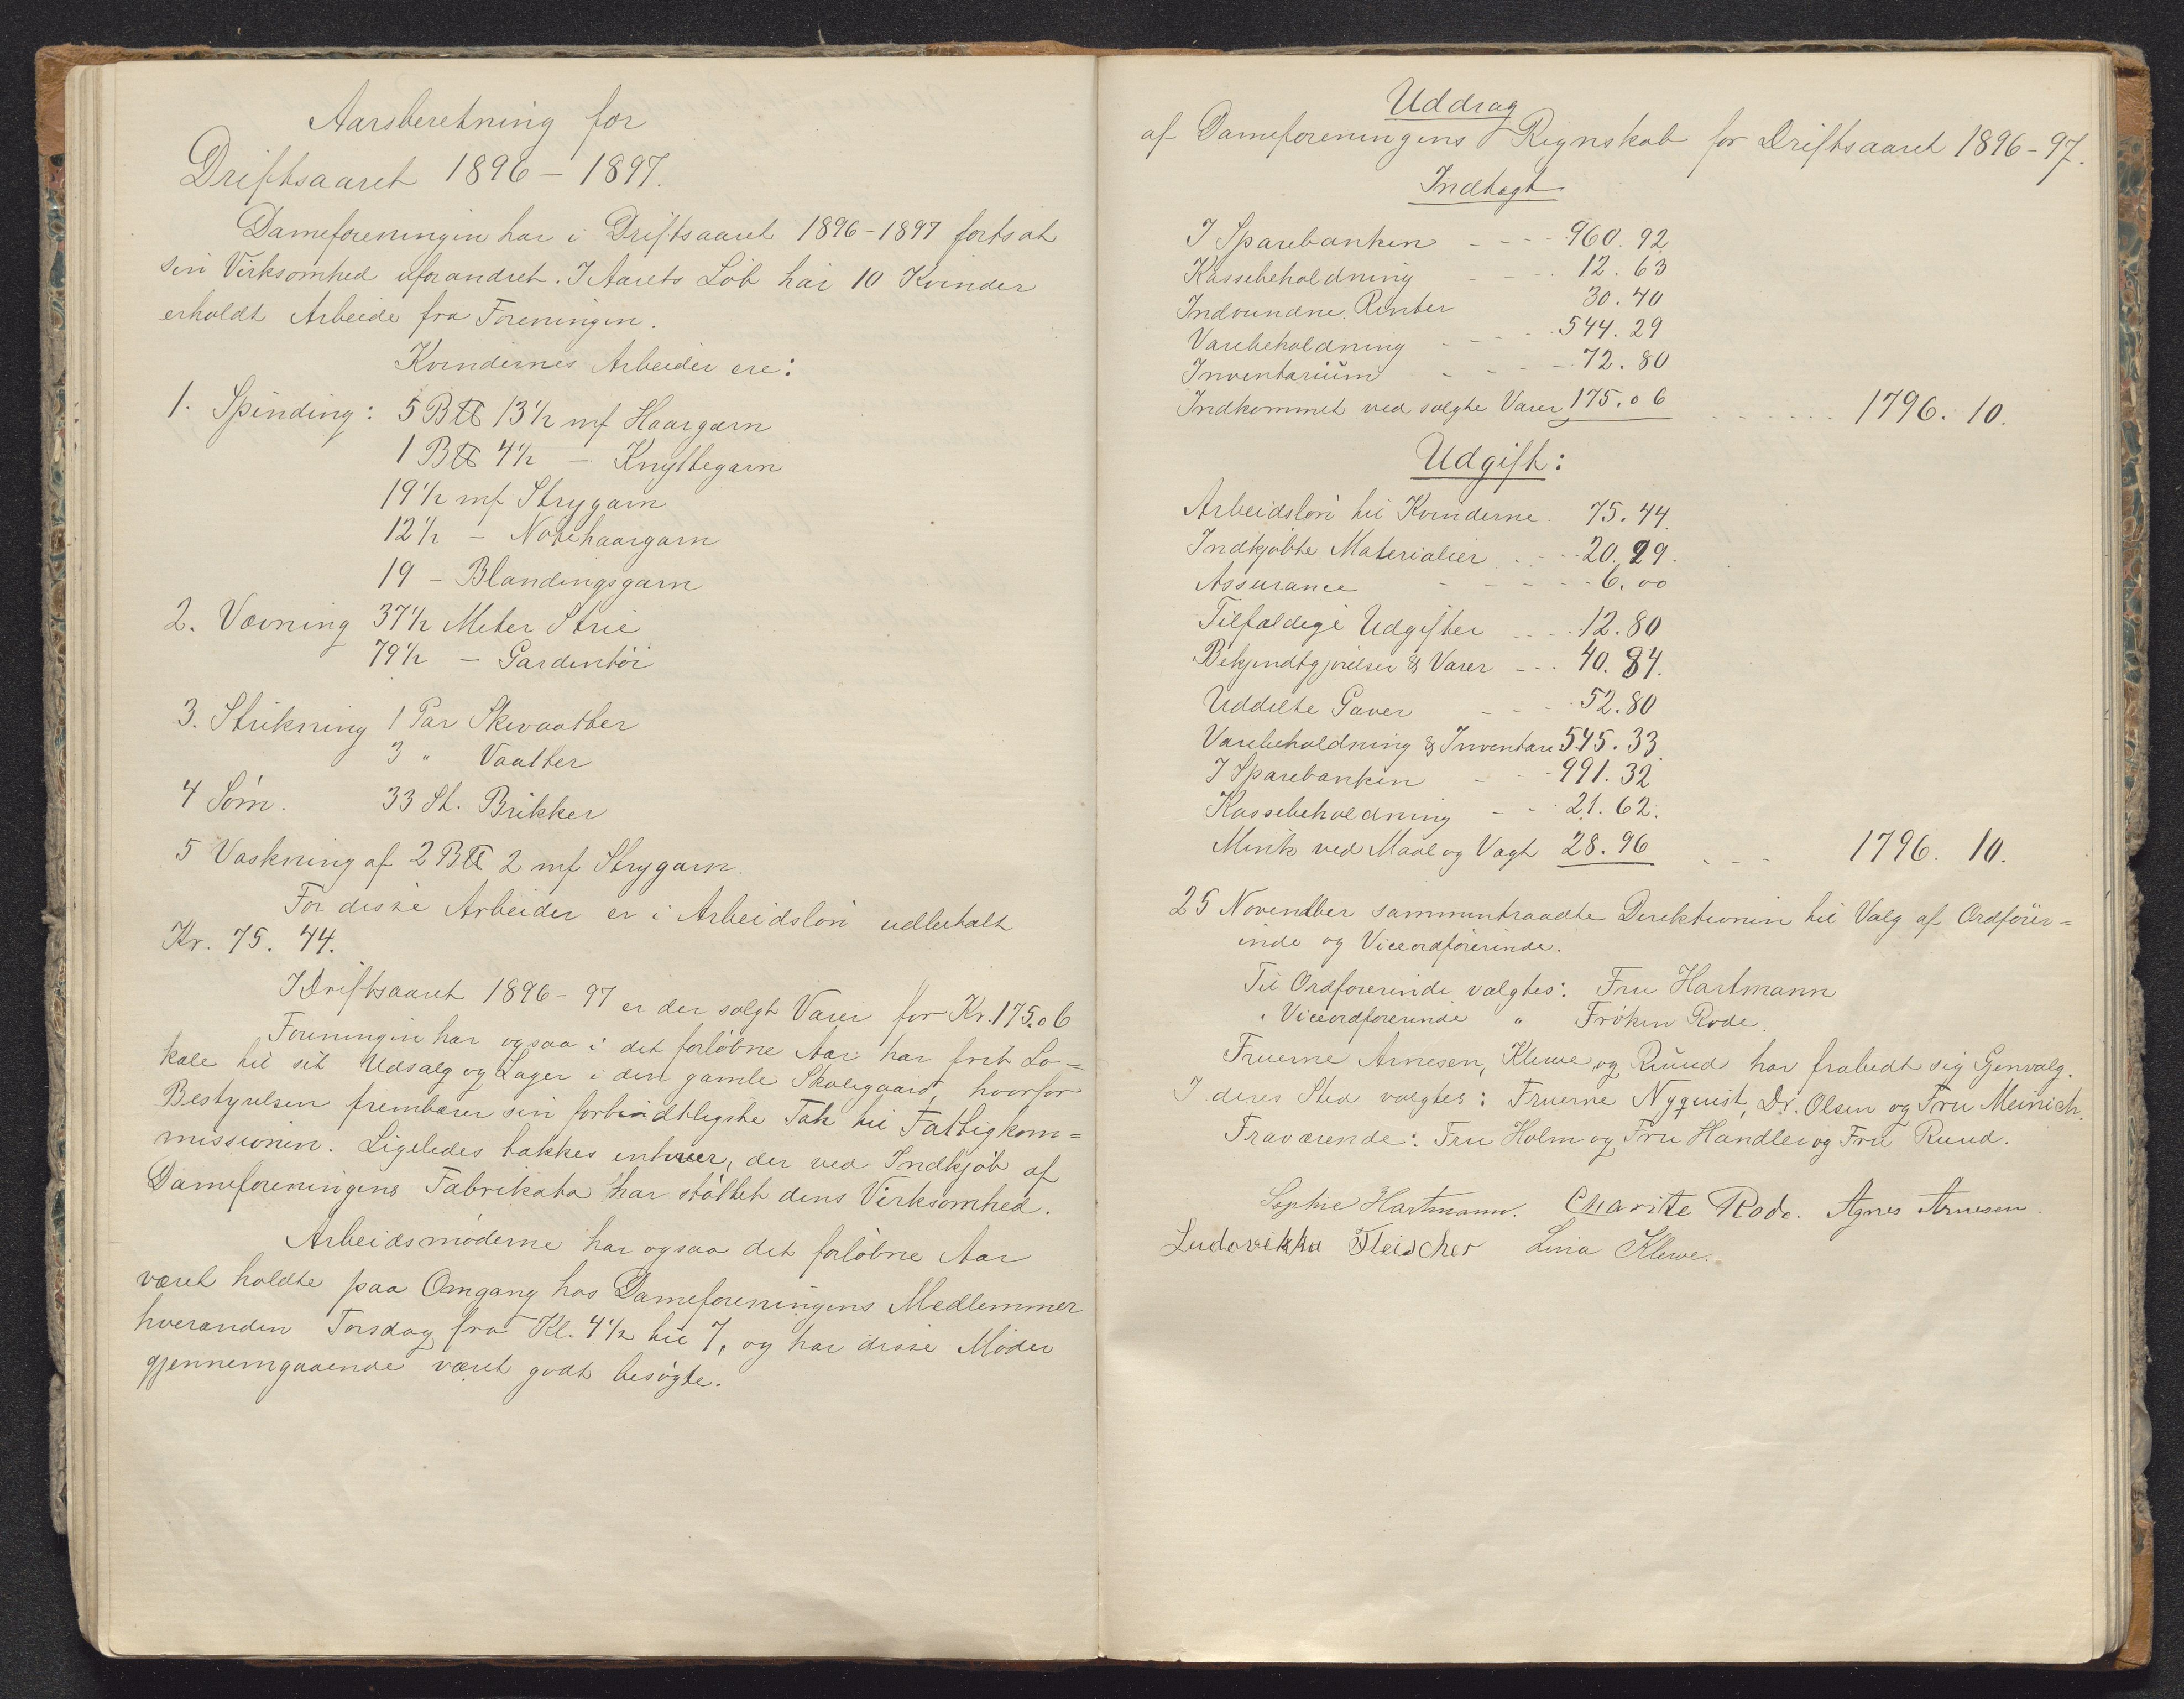 Aarsberetning for
Driftsaaret 1896 – 1897.
Dameforeningen har i Driftsaaret 1896-1897 fortsat
sin Virksomhed uforandret. I Aarets Löb har 10 Kvinder
erholdt Arbeide fra Foreningen.
Kvindernes Arbeider ere:
1. Spinding: 5 B℔ 13½ mf Haargarn
1 B℔ 4½ – Knyttegarn
19½ mf Strygarn
12½ – Notehaargarn
19 – Blandingsgarn
2. Vævning 37½ Meter Strie
79½ – Gardintöi
3. Strikning 1 Par Skevaatter
3 " Vaatter
4 Söm. 33 St. Brikker
5 Vaskning af 2 B℔ 2 mf Strygarn.
For disse Arbeider er i Arbeidslön udbetalt
Kr. 75. 44.
I Driftsaaret 1896-97 er der solgt Varer for Kr. 175.06
Foreningen har ogsaa i det forlöbne Aar har frit Lo=
kale til sit Udsalg og Lager i den gamle Skolegaard, hvorfor
Bestyrelsen frembærer sin forbindtligste Tak til Fattigkom=
missionen. Ligeledes takkes enhver, der ved Indkjöb af
Dameforeningens Fabrikata har stöttet dens Virksomhed.
Arbeidsmöderne har ogsaa det forlöbne Aar
været holdte paa Omgang hos Dameforeningens Medlemmer
hveranden Torsdag fra Kl. 4½ til 7, og har disse Möder
gjennemgaaende været godt besögte.
Uddrag
af Dameforeningens Regnskab for Driftsaaret 1896-97.
Indtægt
I Sparebanken - - - - 960. 92
Kassebeholdning - - - 12. 63
Indvundne Renter 30. 40
Varebeholdning - - - - 544. 29
Inventarium - - - - 72. 80
Indkommet ved solgte Varer 175. 06 - - - - - - 1796. 10.
Udgift:
Arbeidslön til Kvinderne. 75. 44.
Indkjöbte Materialier - - - 20. 99.
Assurance - - - - - 6. 00
Tilfældige Udgifter - - - - 12. 80
Bekjendtgjörelser & Varer - - - 40. 84.
Uddelte Gaver - - - 52. 80
Varebeholdning & Inventare 545. 33.
I Sparebanken - - - 991. 32
Kassebeholdning - - 21. 62.
Mink ved Maal og Vægt 28. 96 - - - 1796. 10.
25 November sammentraadte Direktionen til Valg af Ordförer=
inde og Viceordförerinde.
Til Ordförerinde valgtes: Fru Hartmann
" Viceordförerinde " Fröken Rode.
Fruerne Arnesen, Klewe og Ruud har frabedt sig Gjenvalg.
I deres Sted valgtes: Fruerne Nyquist, Dr. Olsen og Fru Meinich.
Fraværende: Fru Holm og Fru Handler og Fru Ruud.
Sophie Hartmann. Charite Rode. Agnes Arnesen.
Ludovikka Fleischer Lina Klewe.